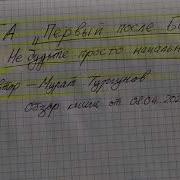 ГА „Первый после Бо
Не будьте просто начальни
втор – Мурат Тургунов
обзор книги от 08.04.202